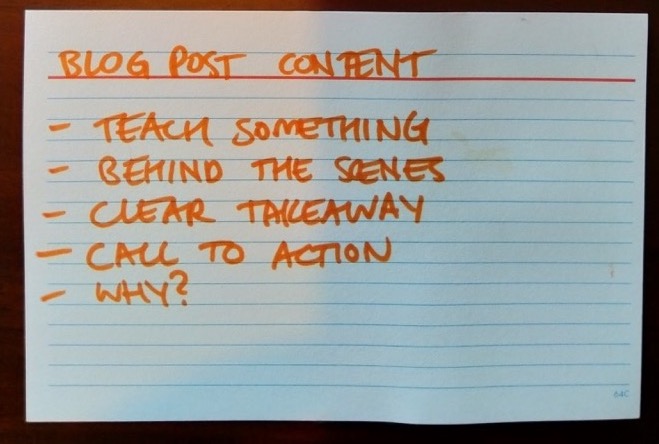 BLOG POST CONTENT
- TEACH SOMETHING
- BEHIND THE SCENES
- CLEAR TAKEAWAY
- CALL TO ACTION
- WHY?